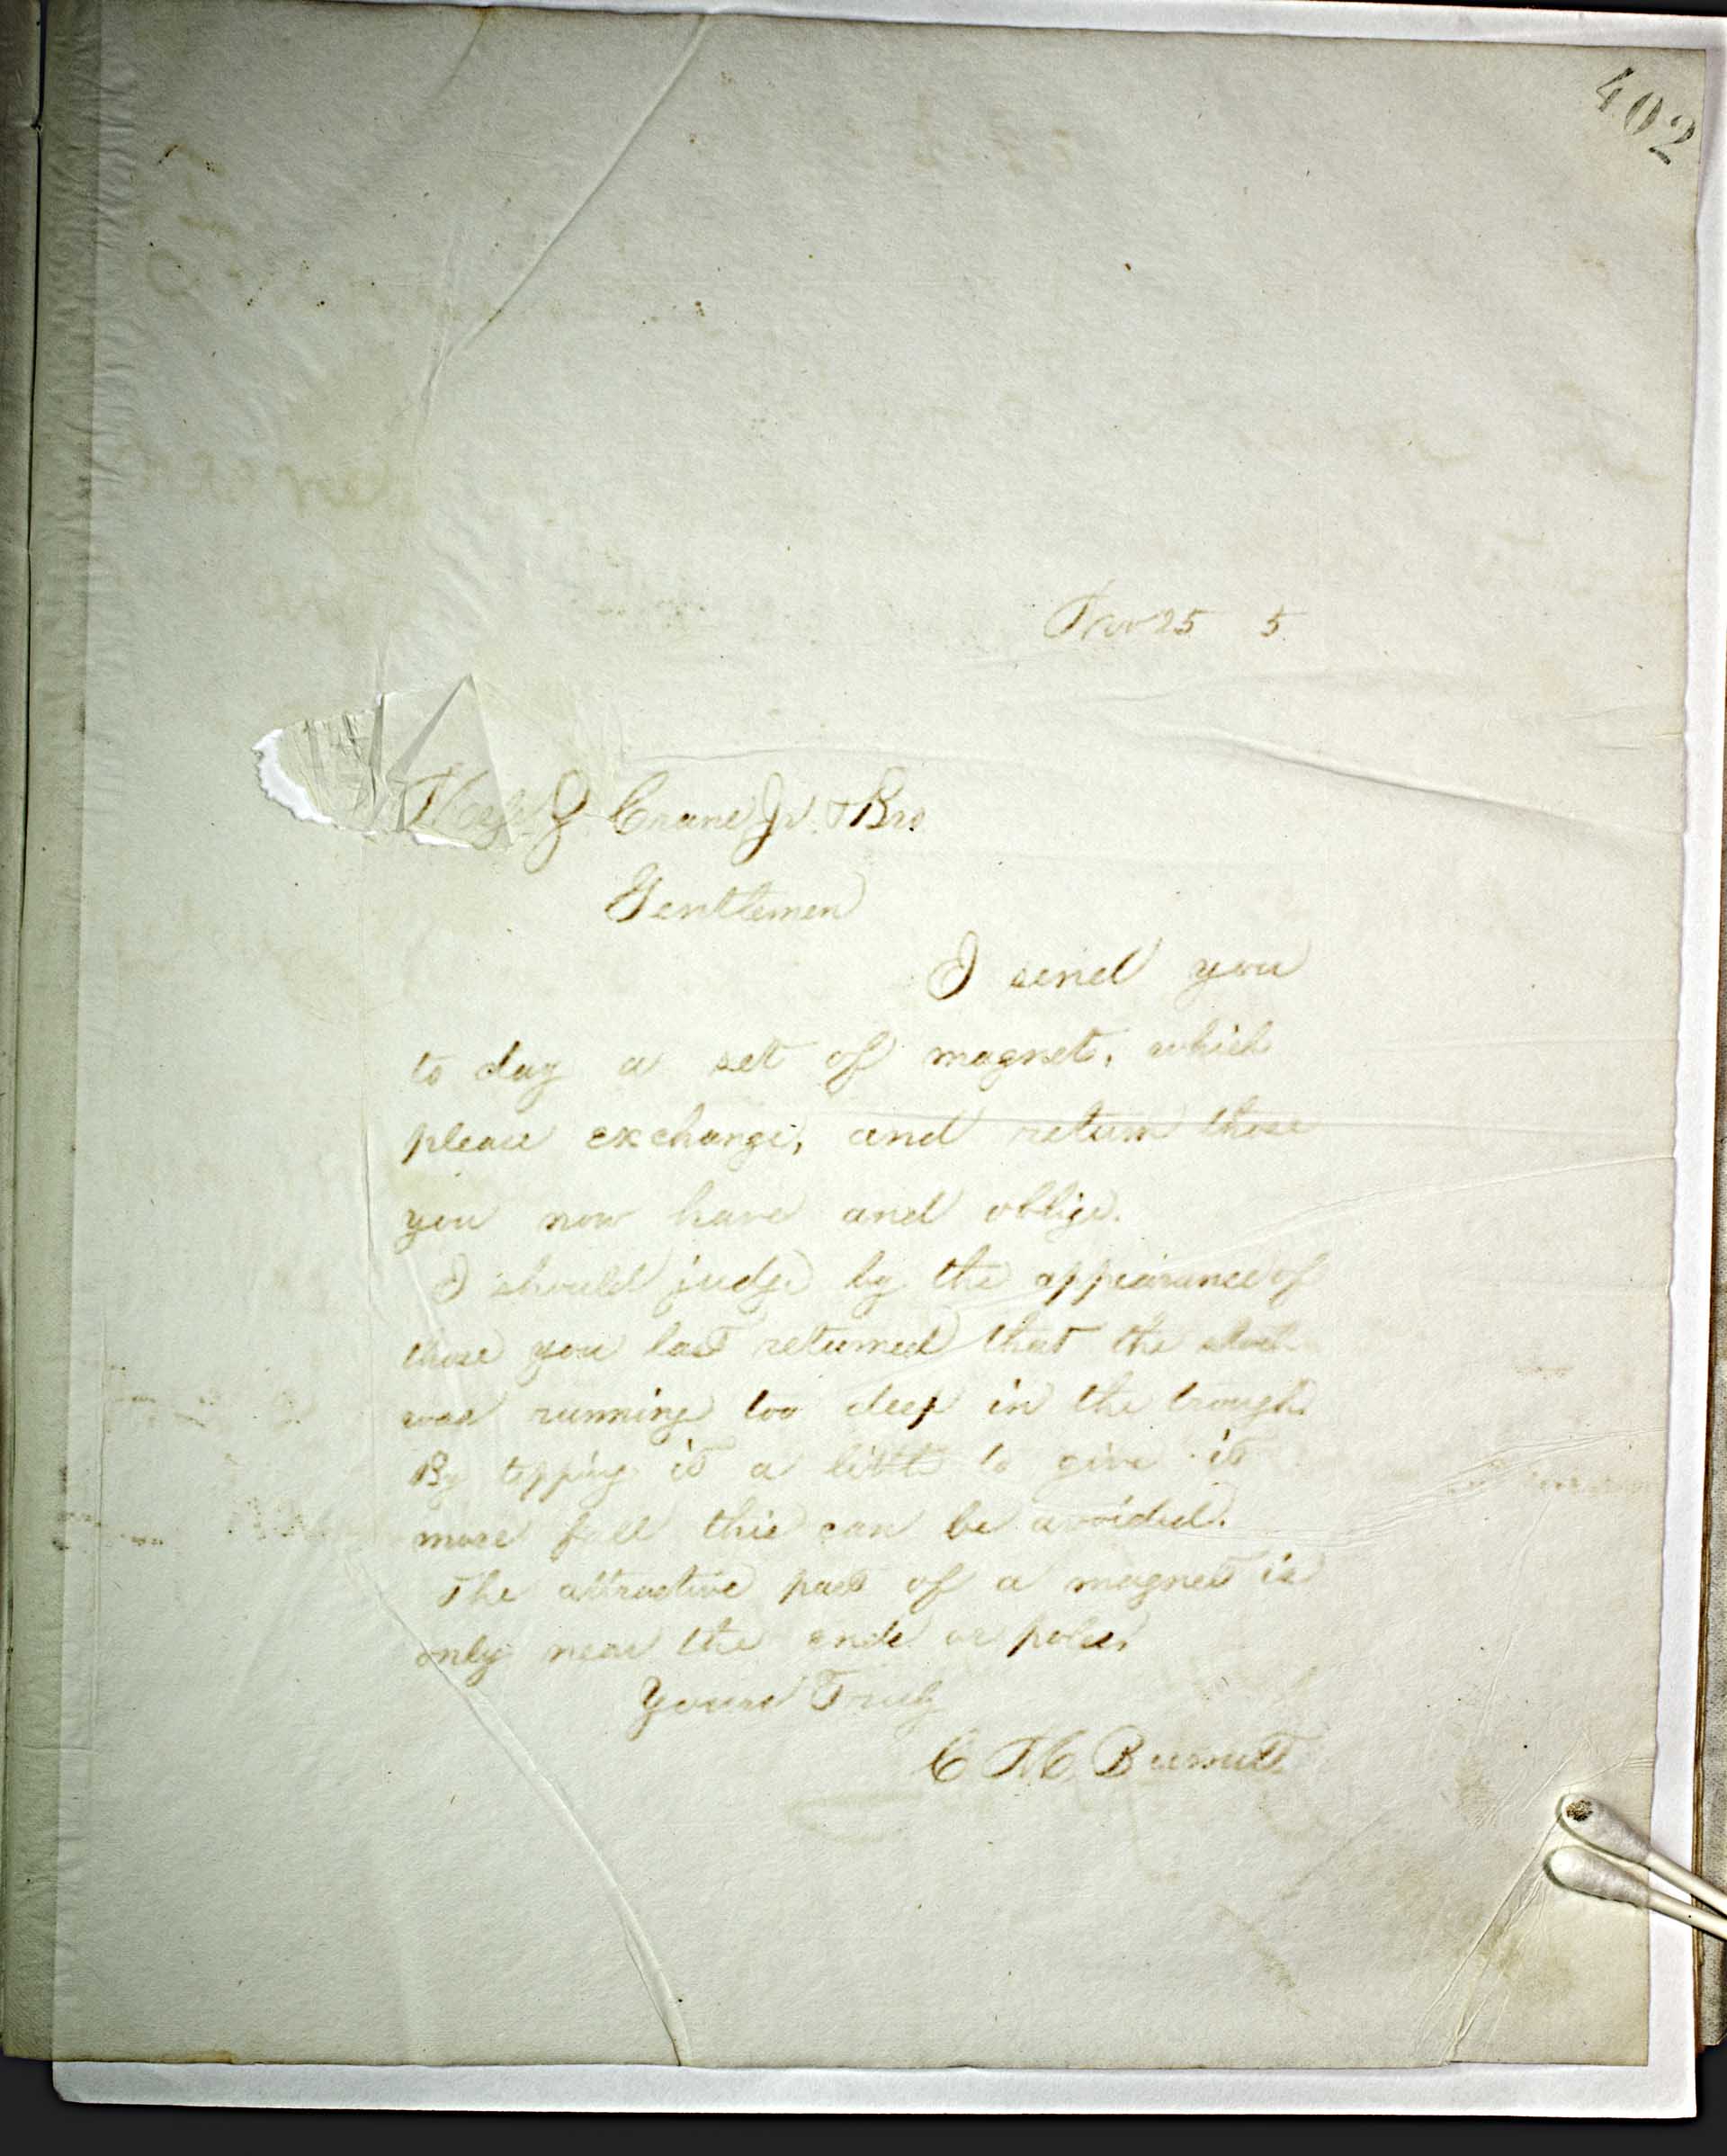 402
Nov 25 5
Mess J. Crane Jr. & Bro
Gentlemen
I send you
to day a set of magnets, which
please exchange, and return those
you now have and oblige.
I should judge by the appearance of
those you last returned that the stock
was running too deep in the trough.
By tipping it a little to give it
more fall this can be avoided.
The attractive part of a magnet is
only near the ends or poles.
Yours Truly
C H Burnett